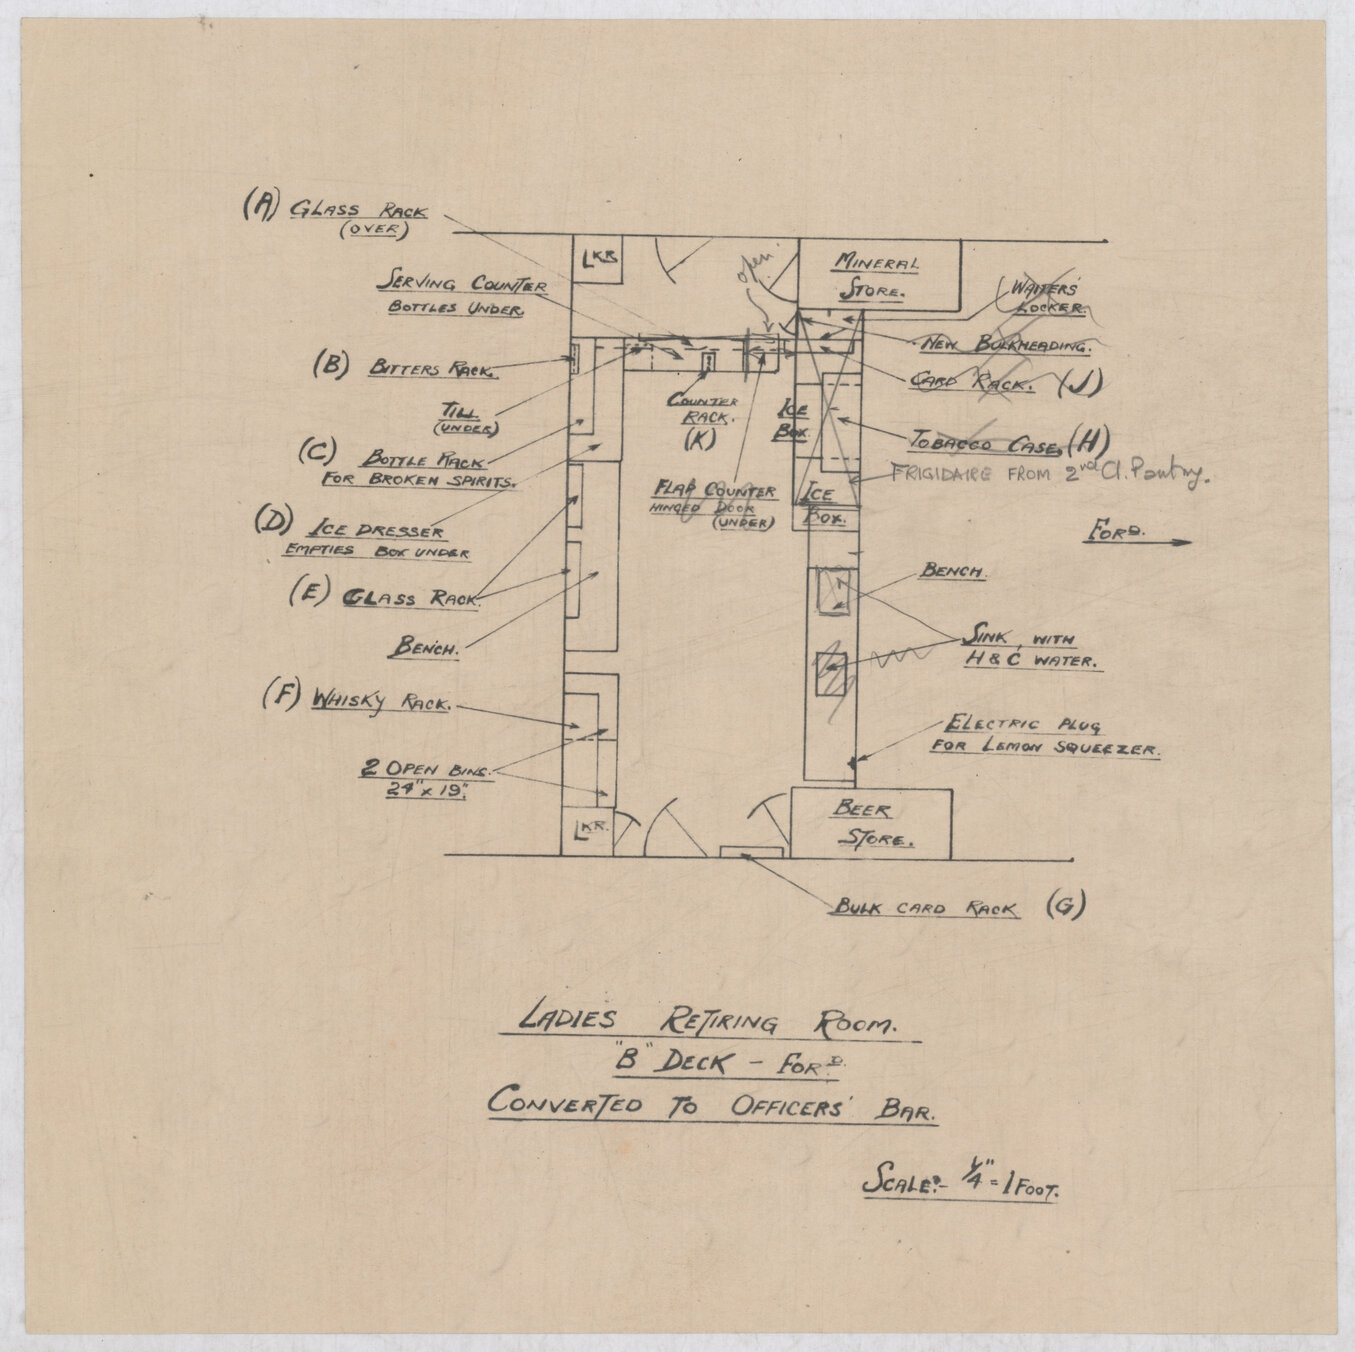 (A) GLASS RACK
(OVER)
SERVING COUNTER
BOTTLES UNDER.
(B) BITTERS RACK.
TILL
(UNDER)
(C) BOTTLE RACK
FOR BROKEN SPIRITS.
(D) ICE DRESSER
EMPTIES BOX UNDER
(E) GLASS RACK.
BENCH.
(F) WHISKY RACK.
2 OPEN BINS.
24" x 19".
LKR
open.
MINERAL
STORE.
WAITERS'
LOCKER.
NEW BULKHEADING.
CARD RACK. (J)
COUNTER
RACK.
(K)
ICE
BOX.
TOBACCO CASE. (H)
FRIGIDAIRE FROM 2nd Cl. Pantry.
FLAP COUNTER
HINGED DOOR
(UNDER)
ICE
BOX.
FORD.
BENCH.
SINK WITH
H & C WATER.
ELECTRIC PLUG
FOR LEMON SQUEEZER.
LKR.
BEER
STORE.
BULK CARD RACK (G)
LADIES RETIRING ROOM.
"B" DECK - FORD.
CONVERTED TO OFFICERS' BAR.
SCALE:- 1/4" = 1 FOOT.